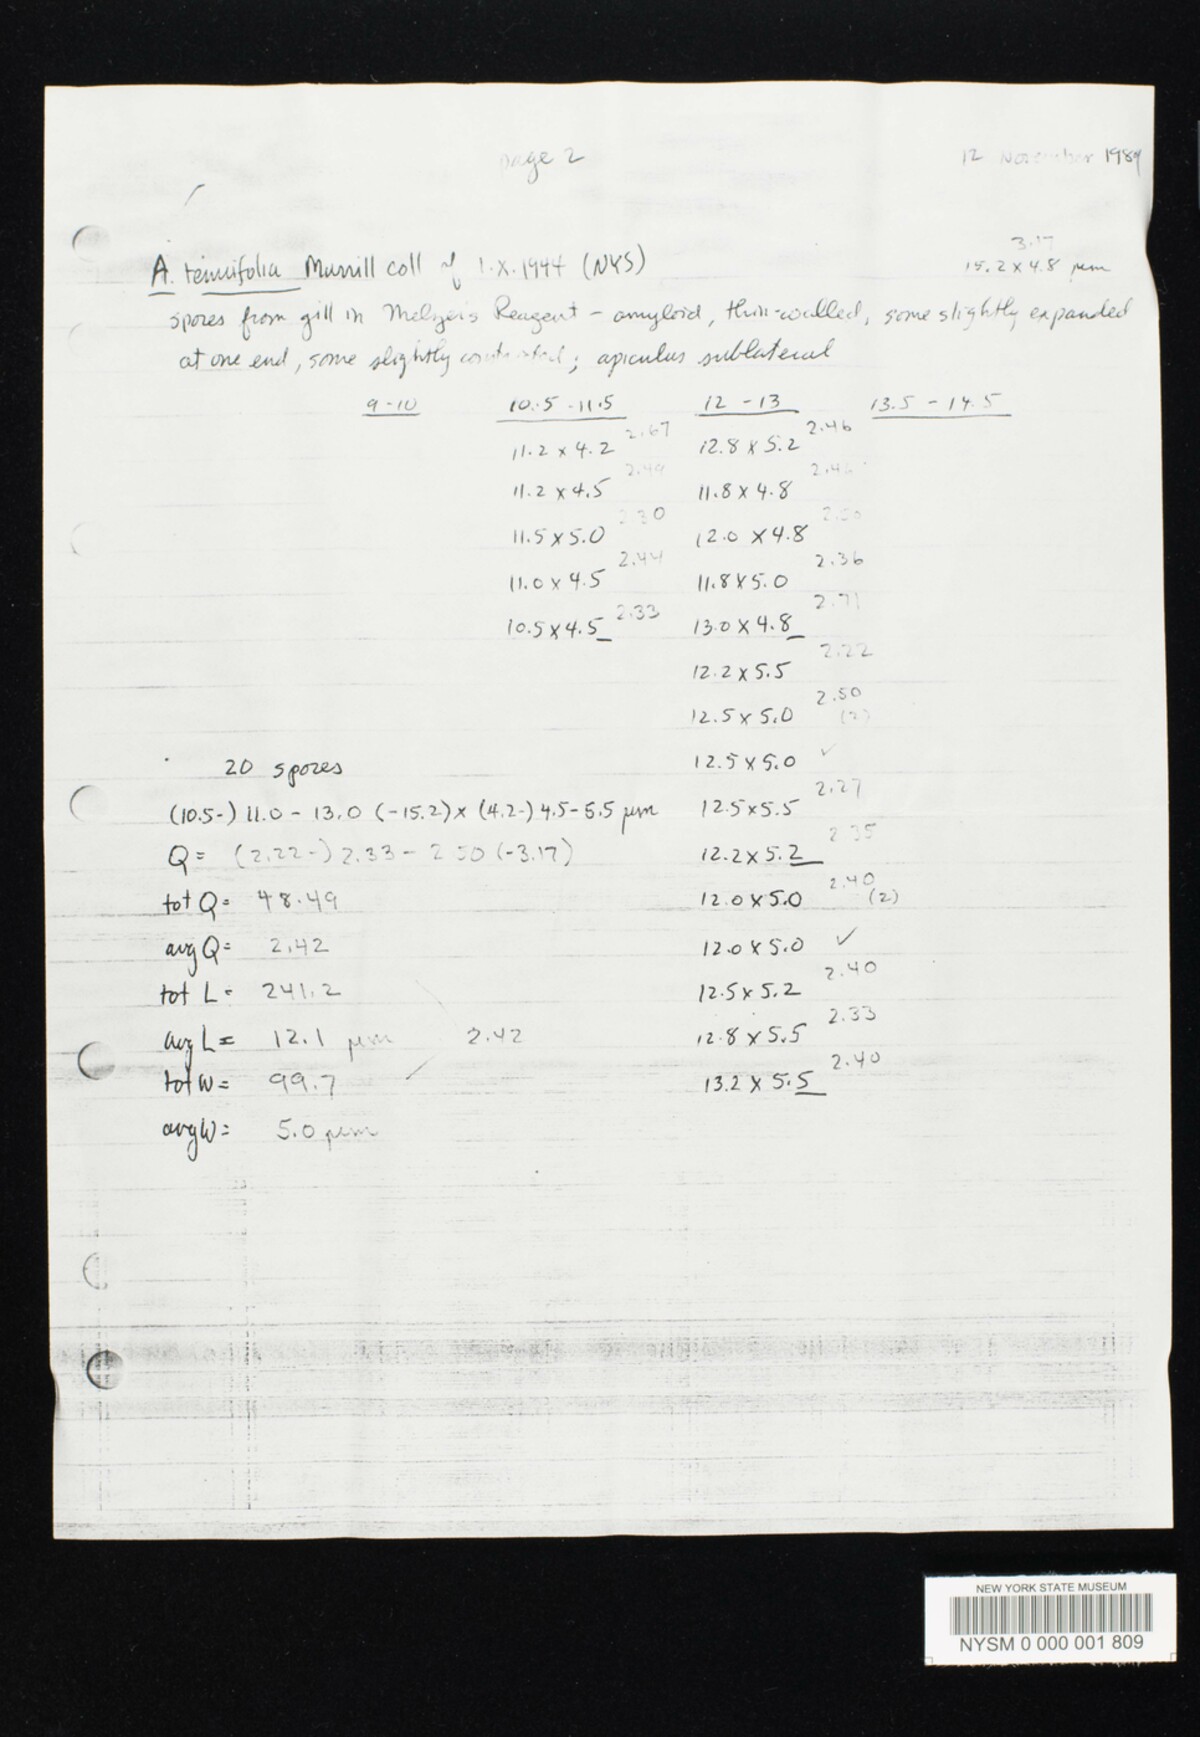 page 2 12 November 1989
3.17
A. tenuifolia Murrill coll of 1.X.1944 (NYS) 15.2 x 4.8 µm
spores from gill in Melzer's Reagent - amyloid, thin-walled, some slightly expanded
at one end, some slightly constricted; apiculus sublateral
9-10 10.5-11.5 12-13 13.5-14.5
11.2 x 4.2 2.67 12.8 x 5.2 2.46
11.2 x 4.5 2.49 11.8 x 4.8 2.46
11.5 x 5.0 2.30 12.0 x 4.8 2.50
11.0 x 4.5 2.44 11.8 x 5.0 2.36
10.5 x 4.5 2.33 13.0 x 4.8 2.71
12.2 x 5.5 2.22
12.5 x 5.0 2.50 (2)
20 spores 12.5 x 5.0 ✓
(10.5-) 11.0 - 13.0 (-15.2) x (4.2-) 4.5-5.5 µm 12.5 x 5.5 2.27
Q = (2.22-) 2.33 - 2.50 (-3.17) 12.2 x 5.2 2.35
tot Q = 48.49 12.0 x 5.0 2.40 (2)
avg Q = 2.42 12.0 x 5.0 ✓
tot L = 241.2 12.5 x 5.2 2.40
avg L = 12.1 µm 2.42 12.8 x 5.5 2.33
tot W = 99.7 ✓ 13.2 x 5.5 2.40
avg W = 5.0 µm
NEW YORK STATE MUSEUM
NYSM 0 000 001 809